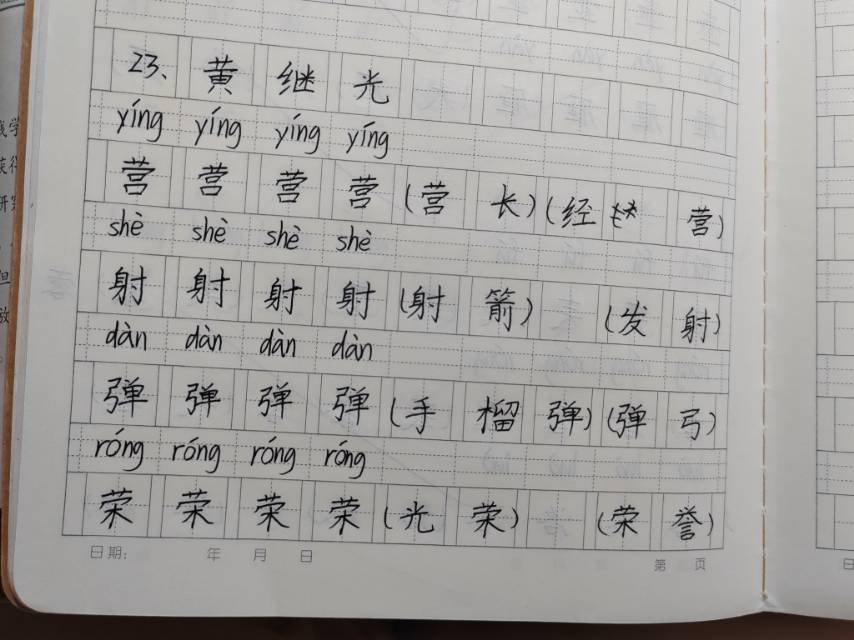 23、黄继光
yíng yíng yíng yíng
营营营营(营长)(经营)
shè shè shè shè
射射射射(射箭)(发射)
dàn dàn dàn dàn
弹弹弹弹(手榴弹)(弹弓)
róng róng róng róng
荣荣荣荣(光荣)(荣誉)
日期: 年 月 日 第 页